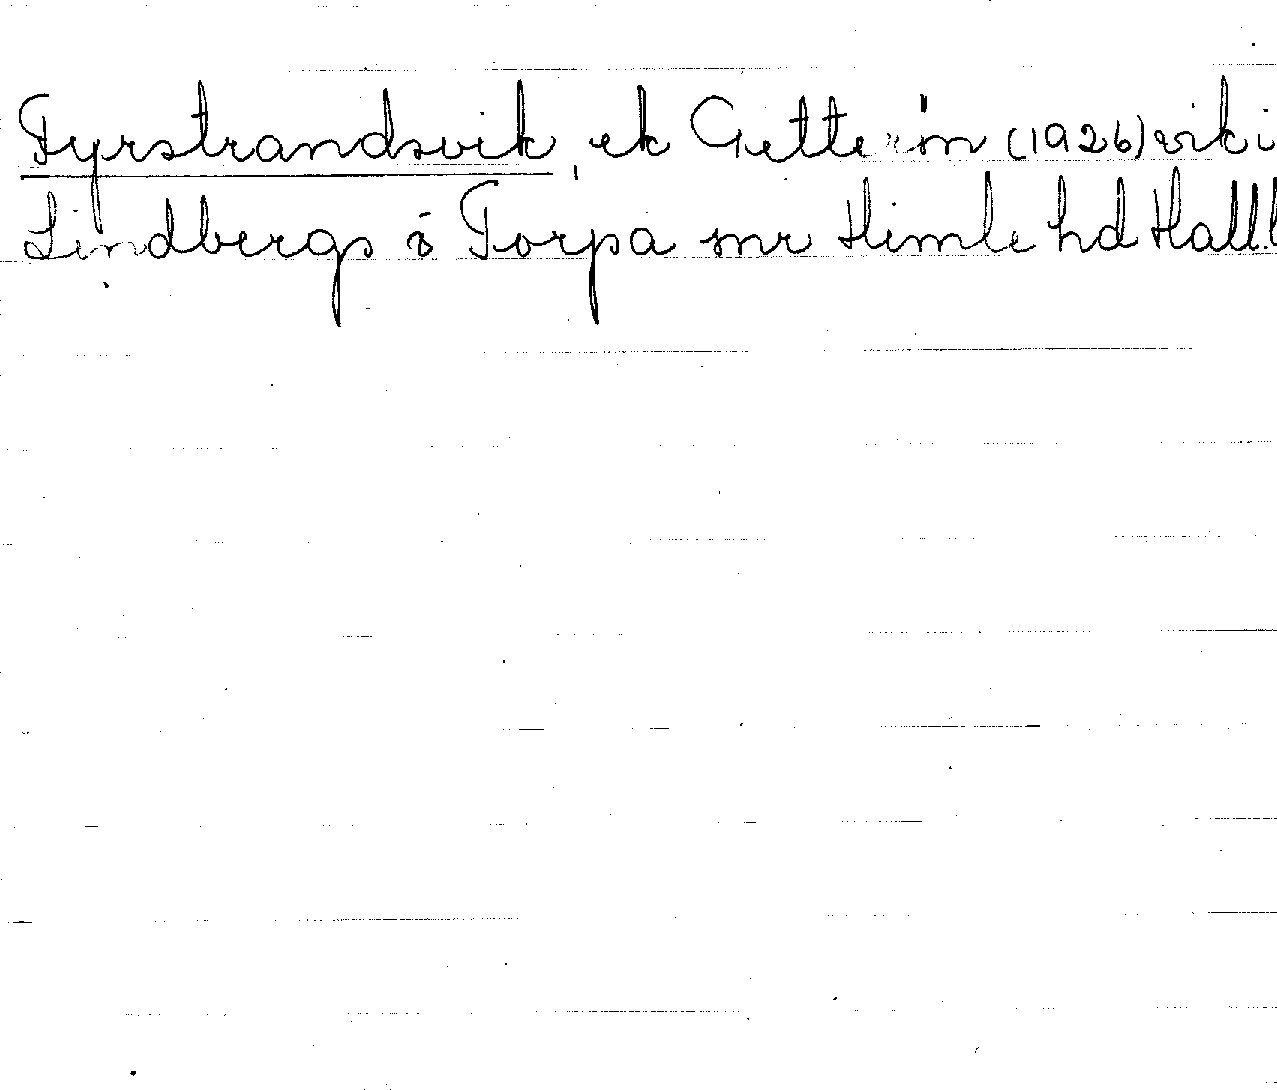 Fyrstrandsvik, ek Getterön (1926) vik i
Lindbergs o Torpa snr Himle hd Hall.l